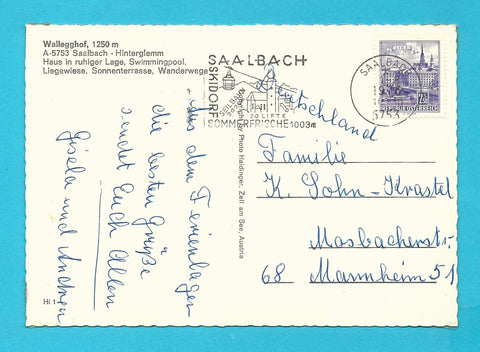 Wallegghof, 1250 m
A-5753 Saalbach - Hinterglemm
Haus in ruhiger Lage, Swimmingpool,
Liegewiese, Sonnenterrasse, Wanderwege
SAALBACH
SKIDORF
SEILBAHN
20 LIFTE
SOMMERFRISCHE 1003m
SAALBACH
5753
Photo Haidinger, Zell am See, Austria
Aus dem Ferienlager
die besten Grüße
sendet Euch Allen
Gisela und
Deutschland
Familie
K. Sohn-Krastel
Mosbacherstr.
68 Mannheim 51
Hi 1